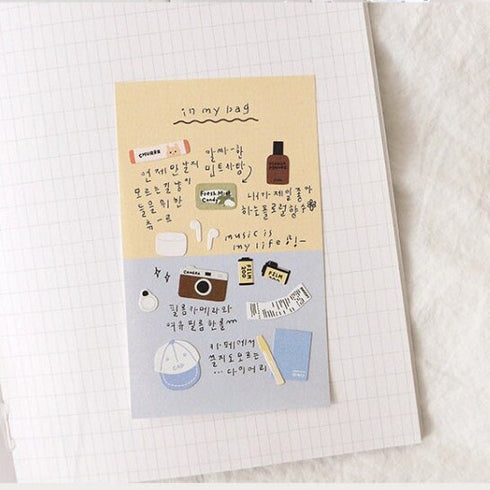 in my bag
CHURRR
언제 만날지
모르는 길냥이
들을 위한
츄-르
알싸-한
민트사탕
Fresh Mint
Candy
내가 제일 좋아
하는 플로럴향수
music is
my life
CAMERA
FILM
200
FILM
필름카메라와
여유 필름 한롤
CAP
카페에서
쓸지도 모르는
...다이어리